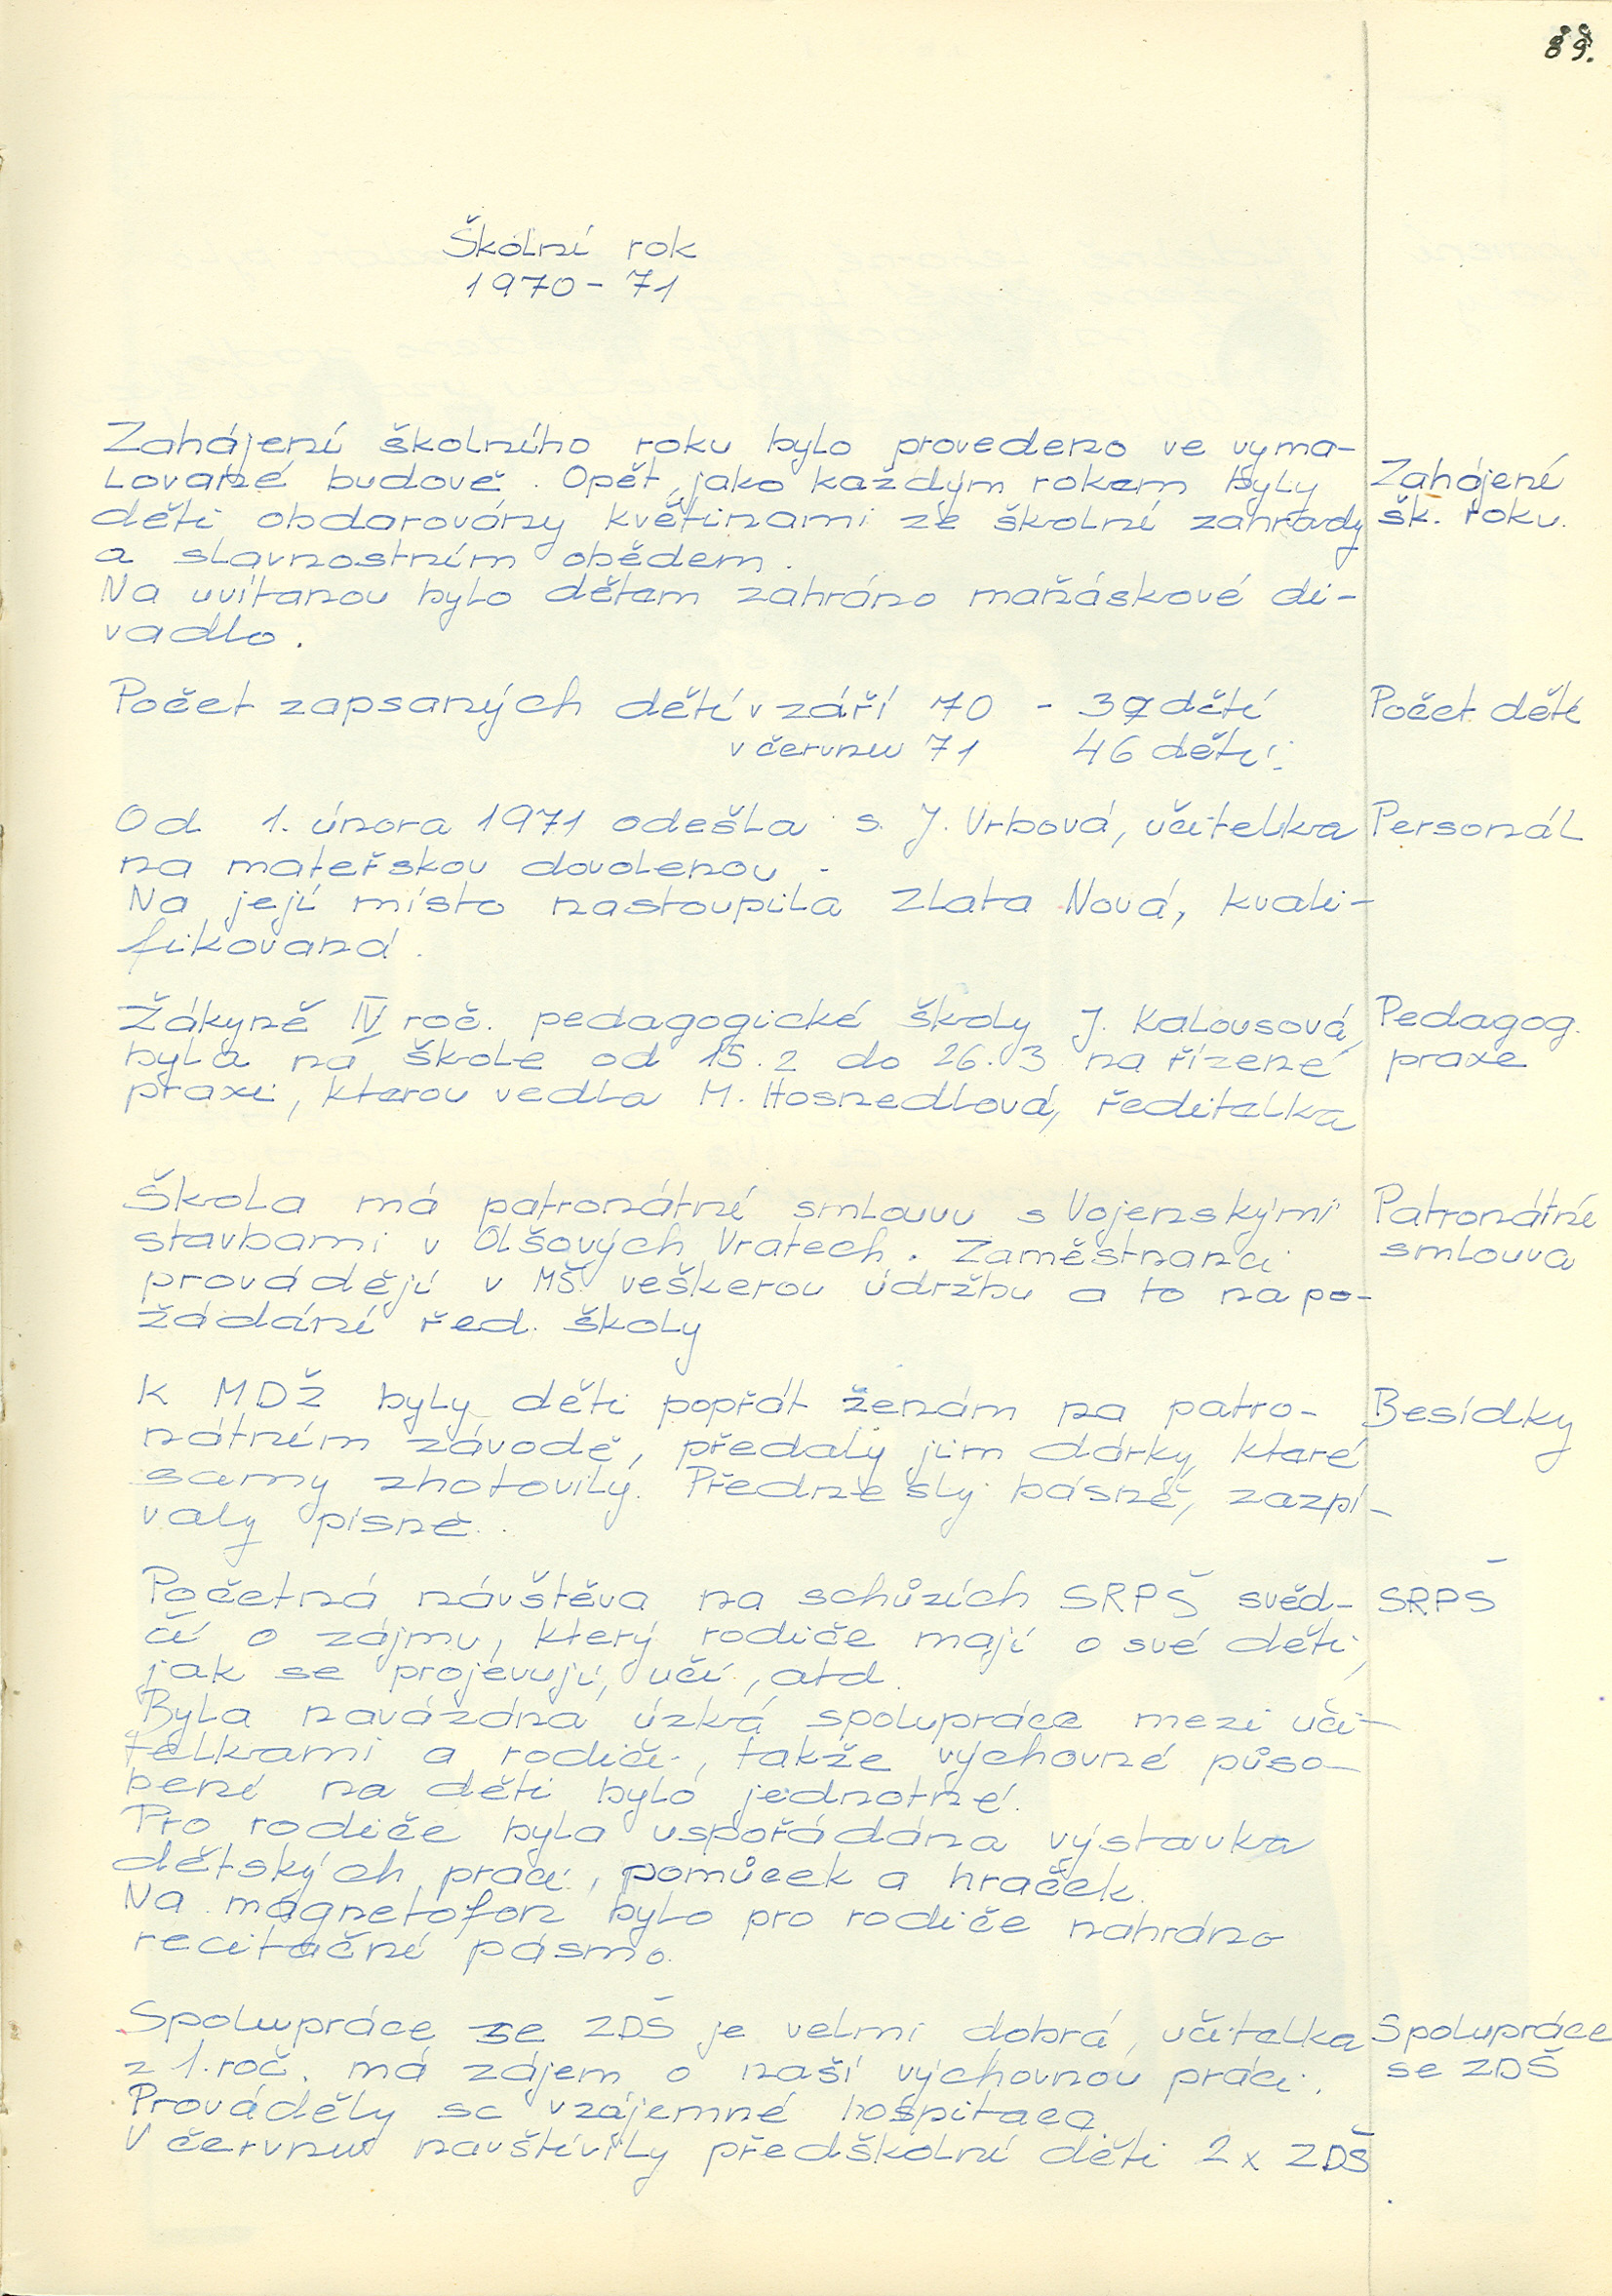 89.
Školní rok
1970 - 71
Zahájení školního roku bylo provedeno ve vyma-
lované budově. Opět, jako každým rokem byly
děti obdarovány květinami ze školní zahrady
a slavnostním obědem.
Na uvítanou bylo dětem zahráno maňáskové di-
vadlo.
Zahájení
šk. roku.
Počet zapsaných dětí v září 70 - 37 dětí
v červnu 71 46 dětí.
Počet dětí
Od 1. února 1971 odešla s. J. Vrbová, učitelka
na mateřskou dovolenou.
Na její místo nastoupila Zlata Nová, kvali-
fikovaná.
Personál
Žákyně IV roč. pedagogické školy J. Kalousová,
byla na škole od 15.2 do 26.3 na řízené
praxi, kterou vedla M. Hosnedlová, ředitelka
Pedagog.
praxe
Škola má patronátní smlouvu s Vojenskými
stavbami v Olšových Vratech. Zaměstnanci
provádějí v MŠ veškerou údržbu a to na po-
žádání řed. školy
Patronátní
smlouva
K MDŽ byly děti popřát ženám na patro-
nátním závodě, předaly jim dárky, které
samy zhotovily. Přednesly básně, zazpí-
valy písně.
Besídky
Početná návštěva na schůzích SRPŠ svěd-
čí o zájmu, který rodiče mají o své děti,
jak se projevují, učí, atd.
Byla navázána úzká spolupráce mezi uči-
telkami a rodiči, takže výchovné půso-
bení na děti bylo jednotné.
Pro rodiče byla uspořádána výstavka
dětských prací, pomůcek a hraček.
Na magnetofon bylo pro rodiče nahráno
recitační pásmo.
SRPŠ
Spolupráce se ZDŠ je velmi dobrá, učitelka
z 1. roč. má zájem o naší výchovnou práci.
Prováděly se vzájemné hospitace.
V červnu navštívily předškolní děti 2x ZDŠ
Spolupráce
se ZDŠ